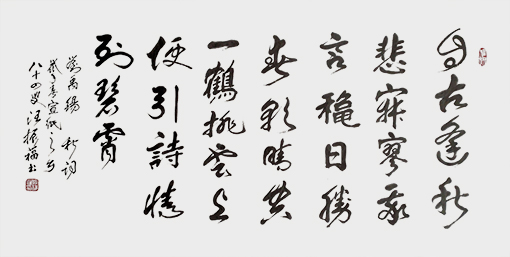 自古逢秋
悲寂寥我
言穐日勝
春朝晴空
一鶴排雲上
便引詩情
到碧霄
劉禹錫 秋詞
八十四叟汪振福書